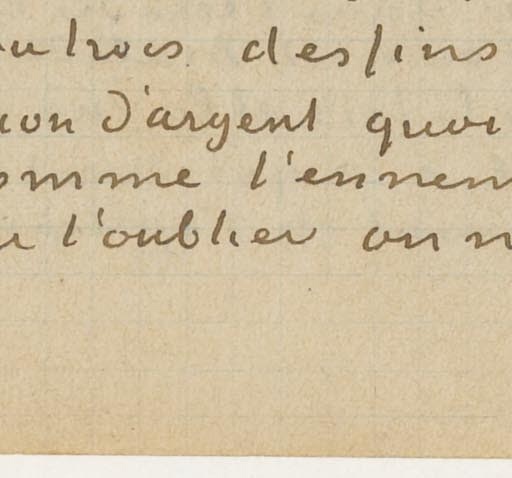 ou trois dessins
ion d'argent quoi
omme l'ennem
r l'oublier on n